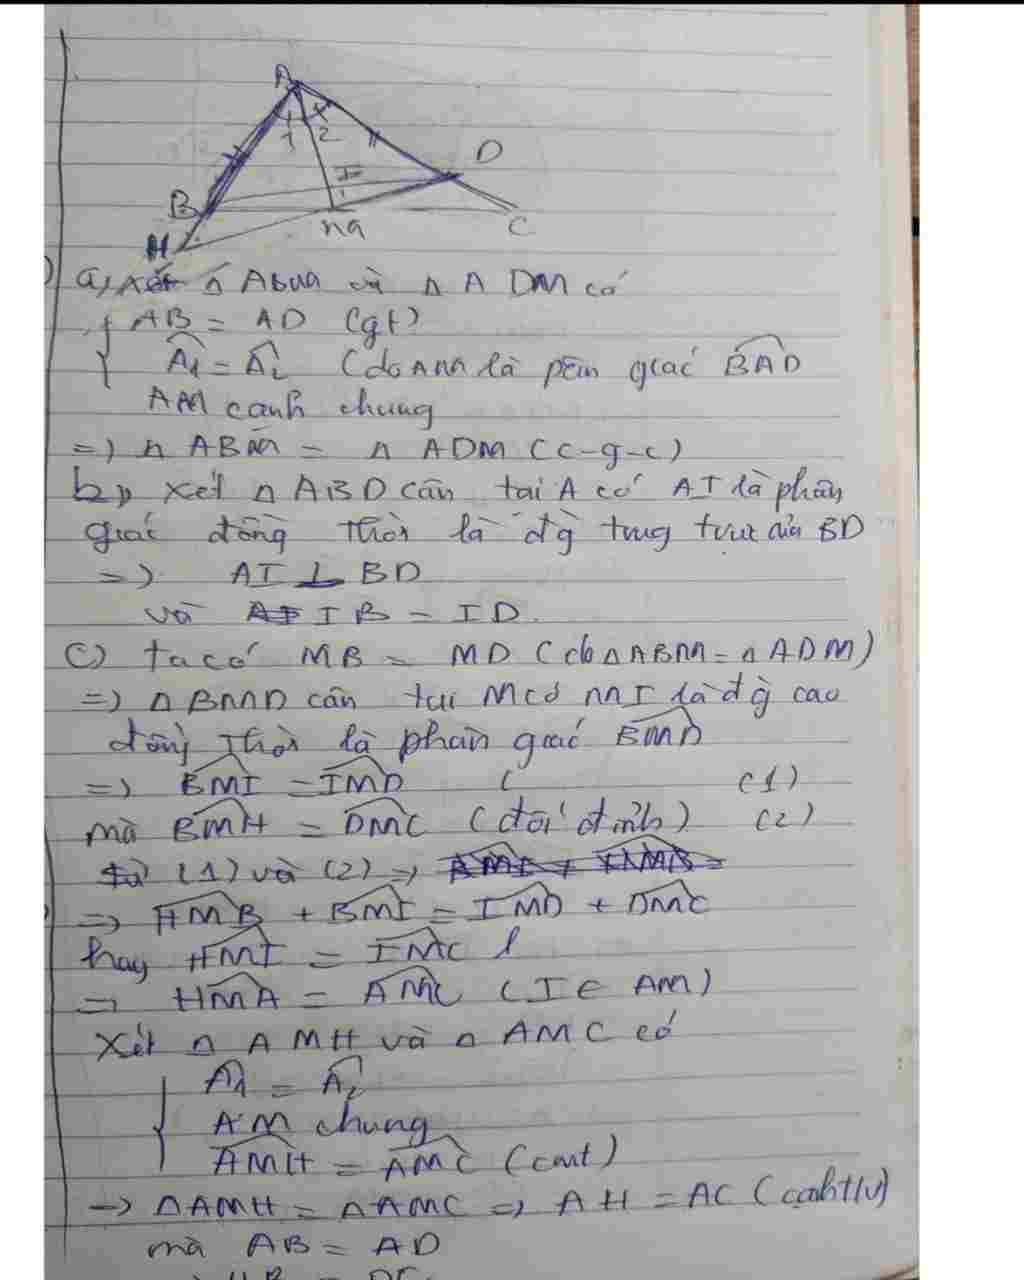 A
1 2
D
I
B
M
C
H
a, xét Δ ABM và Δ ADM có
AB = AD (gt)
Â1 = Â2 (do AM là phân giác BAD
AM cạnh chung
=) Δ ABM = Δ ADM (c-g-c)
b, xét Δ ABD cân tại A có AI là phân
giác đồng thời là đg trung trực của BD
=) AI ⊥ BD
và IB = ID.
c) ta có MB = MD (do Δ ABM = Δ ADM)
=) Δ BMD cân tại M có MI là đg cao
đồng thời là phân giác BMD
=) BMI = IMD ( (1)
mà BMH = DMC (đối đỉnh) (2)
từ (1) và (2) =)
=) HMB + BMI = IMD + DMC
hay HMI = IMC
= HMA = AMC (I ∈ AM)
Xét Δ AMH và Δ AMC có
Â1 = Â2
AM chung
AMH = AMC (cmt)
-) Δ AMH = Δ AMC =) AH = AC (cạnh t/ư)
mà AB = AD
HB = DC